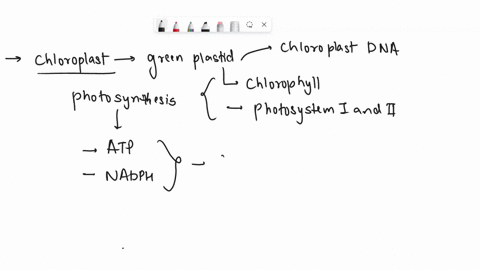 → Chloroplast → green plastid → Chloroplast DNA
Chlorophyll
photosynthesis
→ Photosystem I and II
→ ATP
– NADPH